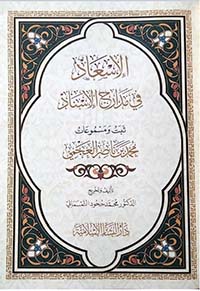 الإسعاد
في مدارج الإسناد
ثبت ومسموعات
محمد بن ناصر العجمي
تأليف وتخريج
الدكتور محمد
دار البشائر الإسلامية